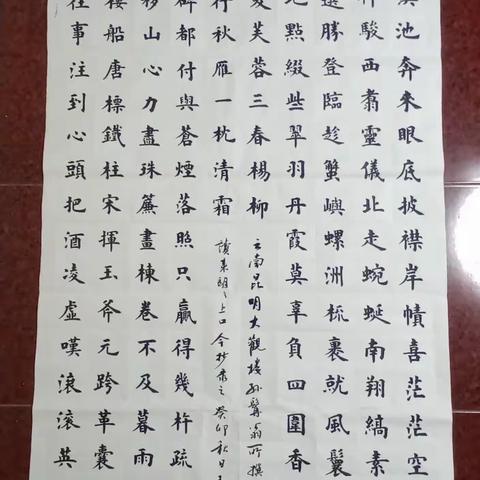 滇池奔來眼底披襟岸幘喜茫茫空
神駿西翥靈儀北走蜿蜒南翔縞素
選勝登臨趁蟹嶼螺洲梳裹就風鬟
地點綴些翠羽丹霞莫辜負四圍香
夏芙蓉三春楊柳
云南昆明大觀樓孫髯翁所撰
行秋雁一枕清霜
讀來朗〻上口今抄录之癸卯秋日
碑都付與蒼煙落照只贏得幾杵疏
移山心力盡珠簾畫棟卷不及暮雨
樓船唐標鐵柱宋揮玉斧元跨革囊
往事注到心頭把酒凌虛嘆滾滾英